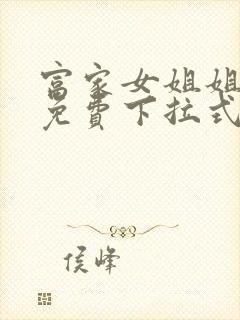 富家女姐姐
免費下拉式
侯峰